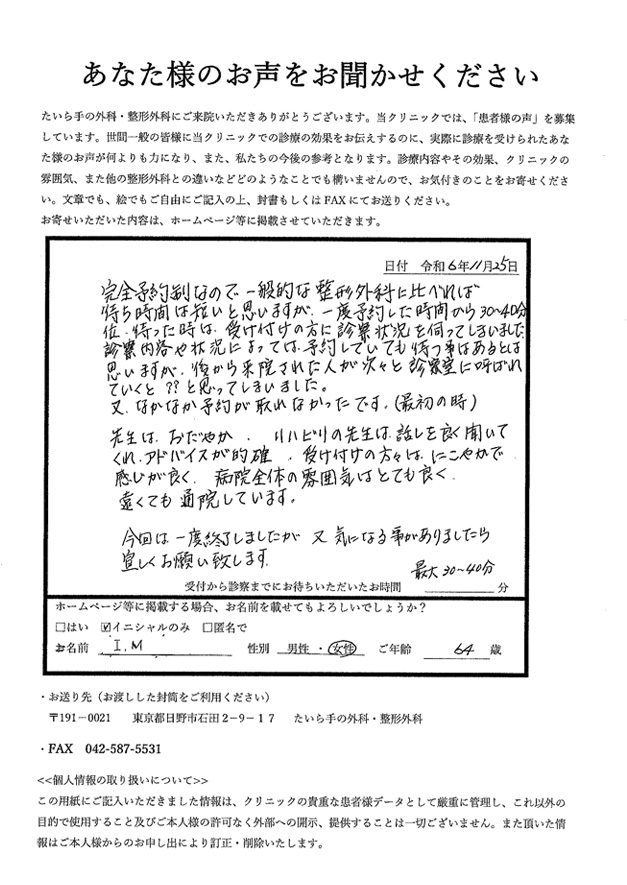 あなた様のお声をお聞かせください
たいら手の外科・整形外科にご来院いただきありがとうございます。当クリニックでは、「患者様の声」を募集
しています。世間一般の皆様に当クリニックでの診療の効果をお伝えするのに、実際に診療を受けられたあな
た様のお声が何よりも力になり、また、私たちの今後の参考となります。診療内容やその効果、クリニックの
雰囲気、また他の整形外科との違いなどどのようなことでも構いませんので、お気付きのことをお寄せくださ
い。文章でも、絵でもご自由にご記入の上、封書もしくはFAXにてお送りください。
お寄せいただいた内容は、ホームページ等に掲載させていただきます。
日付 令和6年11月25日
完全予約制なので一般的な整形外科に比べれば
待ち時間は短いと思いますが、一度予約した時間から30~40分
位、待った時は、受け付けの方に診察状況を伺ってしまいました
診察内容や状況によっては、予約していても待つ事はあるとは
思いますが、後から来院された人が次々と診察室に呼ばれ
ていくと??と思ってしまいました。
又、なかなか予約が取れなかったです。(最初の時)
先生は、おだやか、リハビリの先生は、話しを良く聞いて
くれ、アドバイスが的確、受け付けの方々は、にこやかで
感じが良く、病院全体の雰囲気はとても良く、
遠くても通院しています。
今回は一度終了しましたが 又 気になる事がありましたら
宜しくお願い致します。
最大30~40分
受付から診察までにお待ちいただいたお時間 分
ホームページ等に掲載する場合、お名前を載せてもよろしいでしょうか?
□はい ☑イニシャルのみ □匿名で
お名前 I.M 性別 男性・女性 ご年齢 64 歳
・お送り先(お渡しした封筒をご利用ください)
〒191-0021 東京都日野市石田2-9-17 たいら手の外科・整形外科
・FAX 042-587-5531
<<個人情報の取り扱いについて>>
この用紙にご記入いただきました情報は、クリニックの貴重な患者様データとして厳重に管理し、これ以外の
目的で使用すること及びご本人様の許可なく外部への開示、提供することは一切ございません。また頂いた情
報はご本人様からのお申し出により訂正・削除いたします。